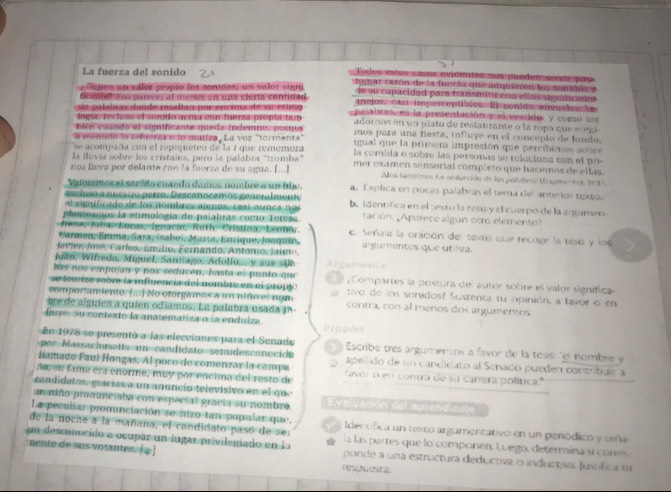 La fuerza del sonido
¿Tienen un valor propio los sonidos, un valor signi
Eso parece; al menos en una cierta cantidad
de palabras donde resaltan por encima de su etimo
logía. Incluso el sonido actúa con fuerza propia tam
bién cuando el significante queda indemne, porque
a menudo lo refuerza o lo matiza. La voz "tormenta"
se acompaña con el repiqueteo de la r que rememora
la lluvia sobre los cristales, pero la palabra "tromba"
nos lleva por delante con la fuerza de su agua. [...]
Valoramos el sonido cuando damos nombre a un hijo,
incluso a nuestro perro. Desconocemos generalmente
el significado de los nombres ajenos, casi nunca nos
planteamos la etimología de palabras como Teresa,
Irene, Julia, Lucas, Ignacio, Ruth, Cristina, Leonor,
Carmen, Emma, Sara, Isabel, Marta, Enrique, Joaquín,
Javier, José, Carlos, Emilio, Fernando, Antonio, Jaime,
Juan, Wilfredo, Miguel, Santiago, Adolfo... y sus síla-
bas nos empujan y nos seducen, hasta el punto que
se teoriza sobre la influencia del nombre en el propio
comportamiento. [...] No otorgamos a un niño el nom-
bre de alguien a quien odiamos. La palabra usada in-
fluye. Su contexto la anatematiza o la endulza.
En 1978 se presentó a las elecciones para el Senado
por Massachusetts un candidato semidesconocido
llamado Paul Hongas. Al poco de comenzar la campa
ña, su fama era enorme, muy por encima del resto de
candidatos, gracias a un anuncio televisivo en el que
un niño pronunciaba con especial gracia su nombre.
La peculiar pronunciación se hizo tan popular que,
de la noche a la mañana, el candidato pasó de ser
un desconocido a ocupar un lugar privilegiado en la
mente de sus votantes. [...]
Todos estos casos evidentes nos pueden servir para
tomar razón de la fuerza que adquieren los sonidos y
de su capacidad para transmitir con ellos significados
anejos, casi imperceptibles. El sonido envuelve la
palabras, es la presentación y el vestido, y como los
adornos en un plato de restaurante o la ropa que elegi-
mos para una fiesta, influye en el concepto de fondo,
igual que la primera impresión que percibimos sobre
la comida o sobre las personas se relaciona con el pri-
mer examen sensorial completo que hacemos de ellas.
a. Explica en pocas palabras el tema del anterior texto.
b. Identifica en el texto la tesis y el cuerpo de la argumen-
tación. ¿Aparece algún otro elemento?
c. Señala la oración del texto que recoge la tesis y los
argumentos que utiliza.
Argumenta
¿Compartes la postura del autor sobre el valor significa-
tivo de los sonidos? Sustenta tu opinión, a favor o en
contra, con al menos dos argumentos.
Propón
Escribe tres argumentos a favor de la tesis "el nombre y
apellido de un candidato al Senado pueden contribuir a
favor o en contra de su carrera política."
Evaluación del aprendizaje
Identifica un texto argumentativo en un periódico y seña-
la las partes que lo componen. Luego, determina si corres-
ponde a una estructura deductiva o inductiva. Justifica su
respuesta.